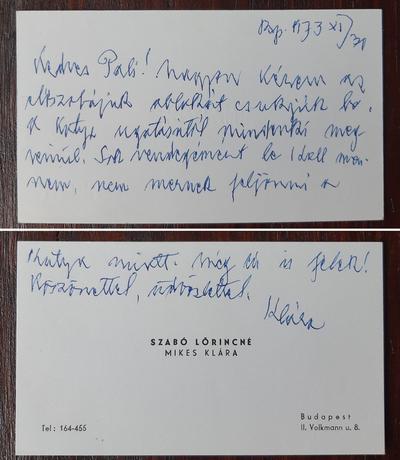 Bp. 973 XI/30
Kedves Pali! Nagyon kérem az
előszobájuk ablakait csukják be,
a kutya ugatásától mindenki meg
rémül. Sok vendégemért le kell men-
nem, nem mernek feljönni a
kutya miatt. Még én is félek!
Köszönettel, üdvözlettel.
Klára
SZABÓ LŐRINCNÉ
MIKES KLÁRA
Tel: 164-455
Budapest
II. Volkmann u. 8.